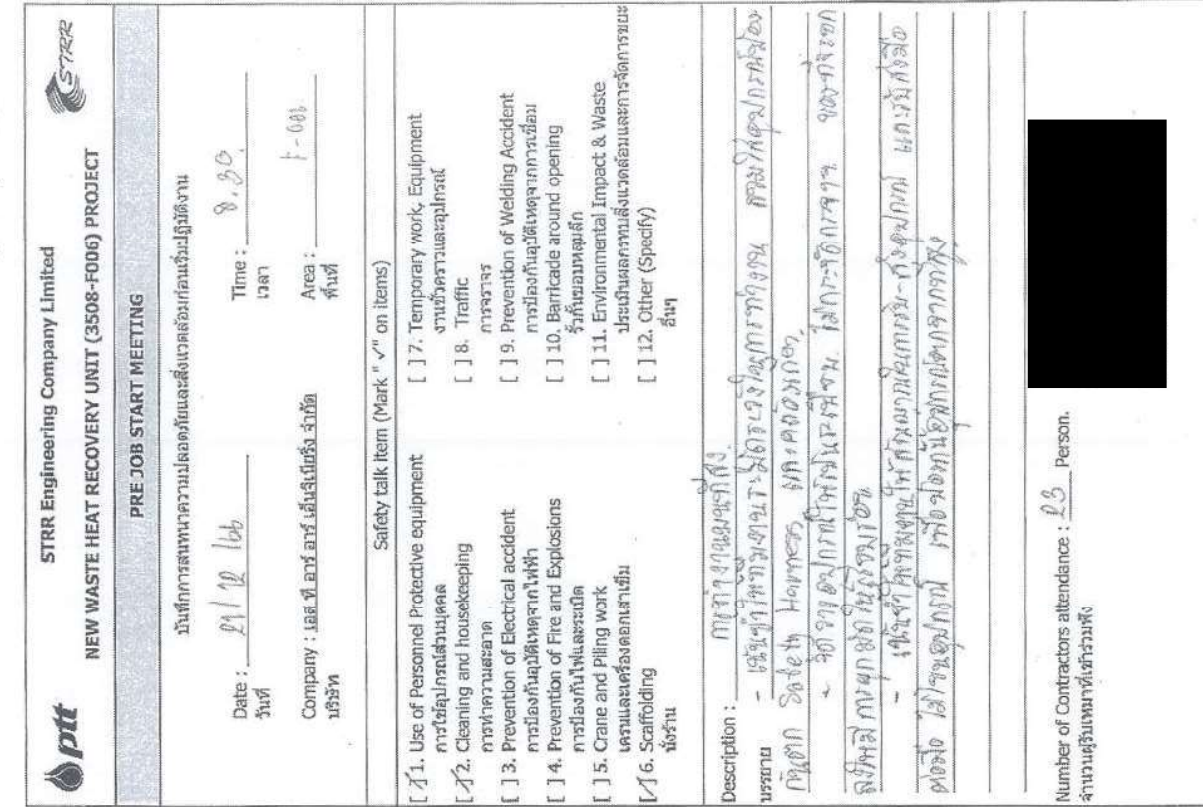 ptt
STRR Engineering Company Limited
STRR
NEW WASTE HEAT RECOVERY UNIT (3508-F006) PROJECT
PRE JOB START MEETING
บันทึกการสนทนาความปลอดภัยและสิ่งแวดล้อมก่อนเริ่มปฏิบัติงาน
Date : 21/12/66 Time : 8.30
วันที่ เวลา
Company : เอส ที อาร์ อาร์ เอ็นจิเนียริ่ง จำกัด Area :
บริษัท พื้นที่
Safety talk item (Mark " ✓" on items)
[✓] 1. Use of Personnel Protective equipment
การใช้อุปกรณ์ส่วนบุคคล
[✓] 2. Cleaning and housekeeping
การทำความสะอาด
[ ] 3. Prevention of Electrical accident
การป้องกันอุบัติเหตุจากไฟฟ้า
[ ] 4. Prevention of Fire and Explosions
การป้องกันไฟและระเบิด
[ ] 5. Crane and Piling work
เครนและเครื่องตอกเสาเข็ม
[✓] 6. Scaffolding
นั่งร้าน
[ ] 7. Temporary work, Equipment
งานชั่วคราวและอุปกรณ์
[ ] 8. Traffic
การจราจร
[ ] 9. Prevention of Welding Accident
การป้องกันอุบัติเหตุจากการเชื่อม
[ ] 10. Barricade around opening
รั้วกั้นขอบหลุมลึก
[ ] 11. Environmental Impact & Waste
ประเมินผลกระทบสิ่งแวดล้อมและการจัดการขยะ
[ ] 12. Other (Specify)
อื่นๆ
Description : การทำงานบนที่สูง
บรรยาย - เน้นย้ำให้ทีมงานระมัดระวังในการทำงาน สวมใส่อุปกรณ์ป้อง
กันตก Safety Harness และคล้องเกี่ยว
- จัดวางอุปกรณ์ให้เป็นระเบียบ ไม่กระจัดกระจาย
- เน้นย้ำให้ทีมงาน
เพื่อป้องกันอุปกรณ์ตกจากที่สูง
Number of Contractors attendance : 23 Person.
จำนวนผู้รับเหมาที่เข้าร่วมฟัง